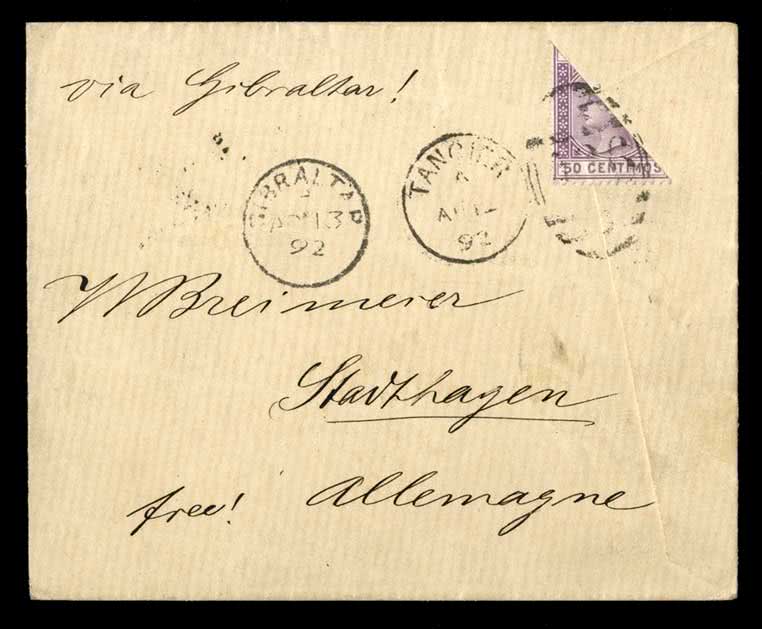 via Gibraltar!
50 CENTIMOS
GIBRALTAR
AP 13
92
TANGIER
A
AP 12
92
Breimeier
Stadthagen
Allemagne
free!